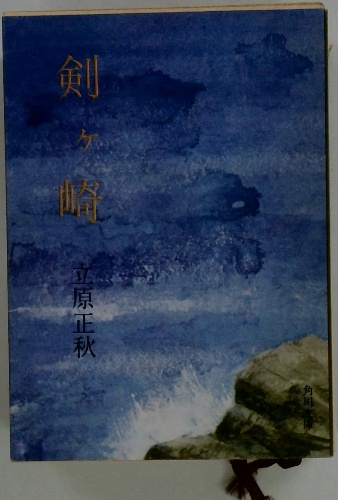 剣ヶ崎
立原正秋
角川文庫